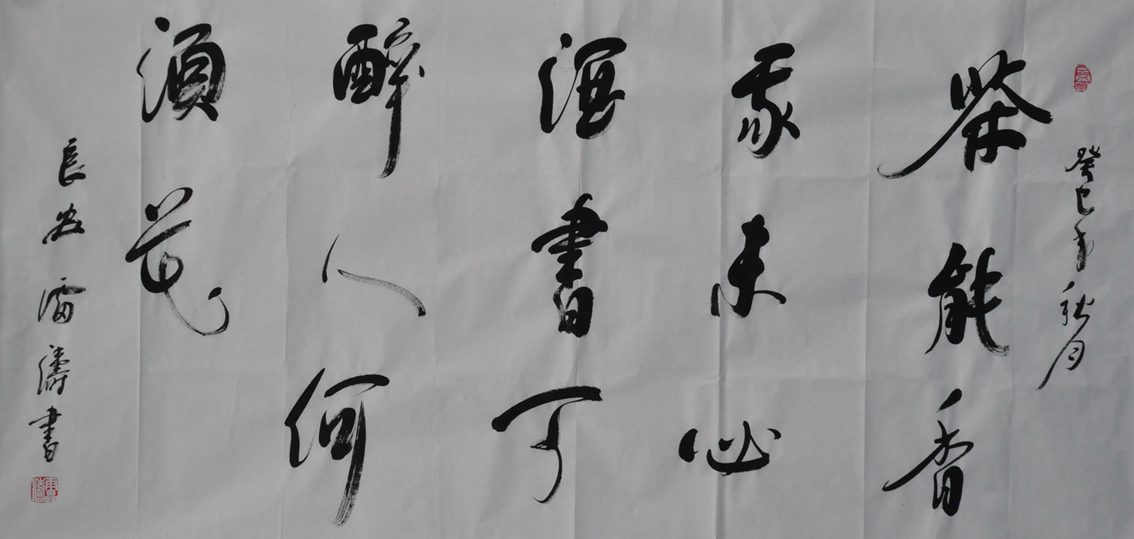 癸巳年秋月
茶能香
我未必
酒書可
醉人何
須花
長安雷濤書